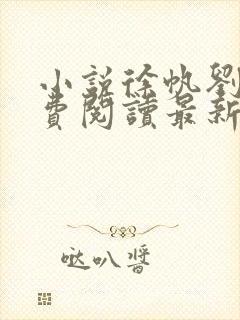 小説徐帆劉
費閱讀最新
哒叭醬